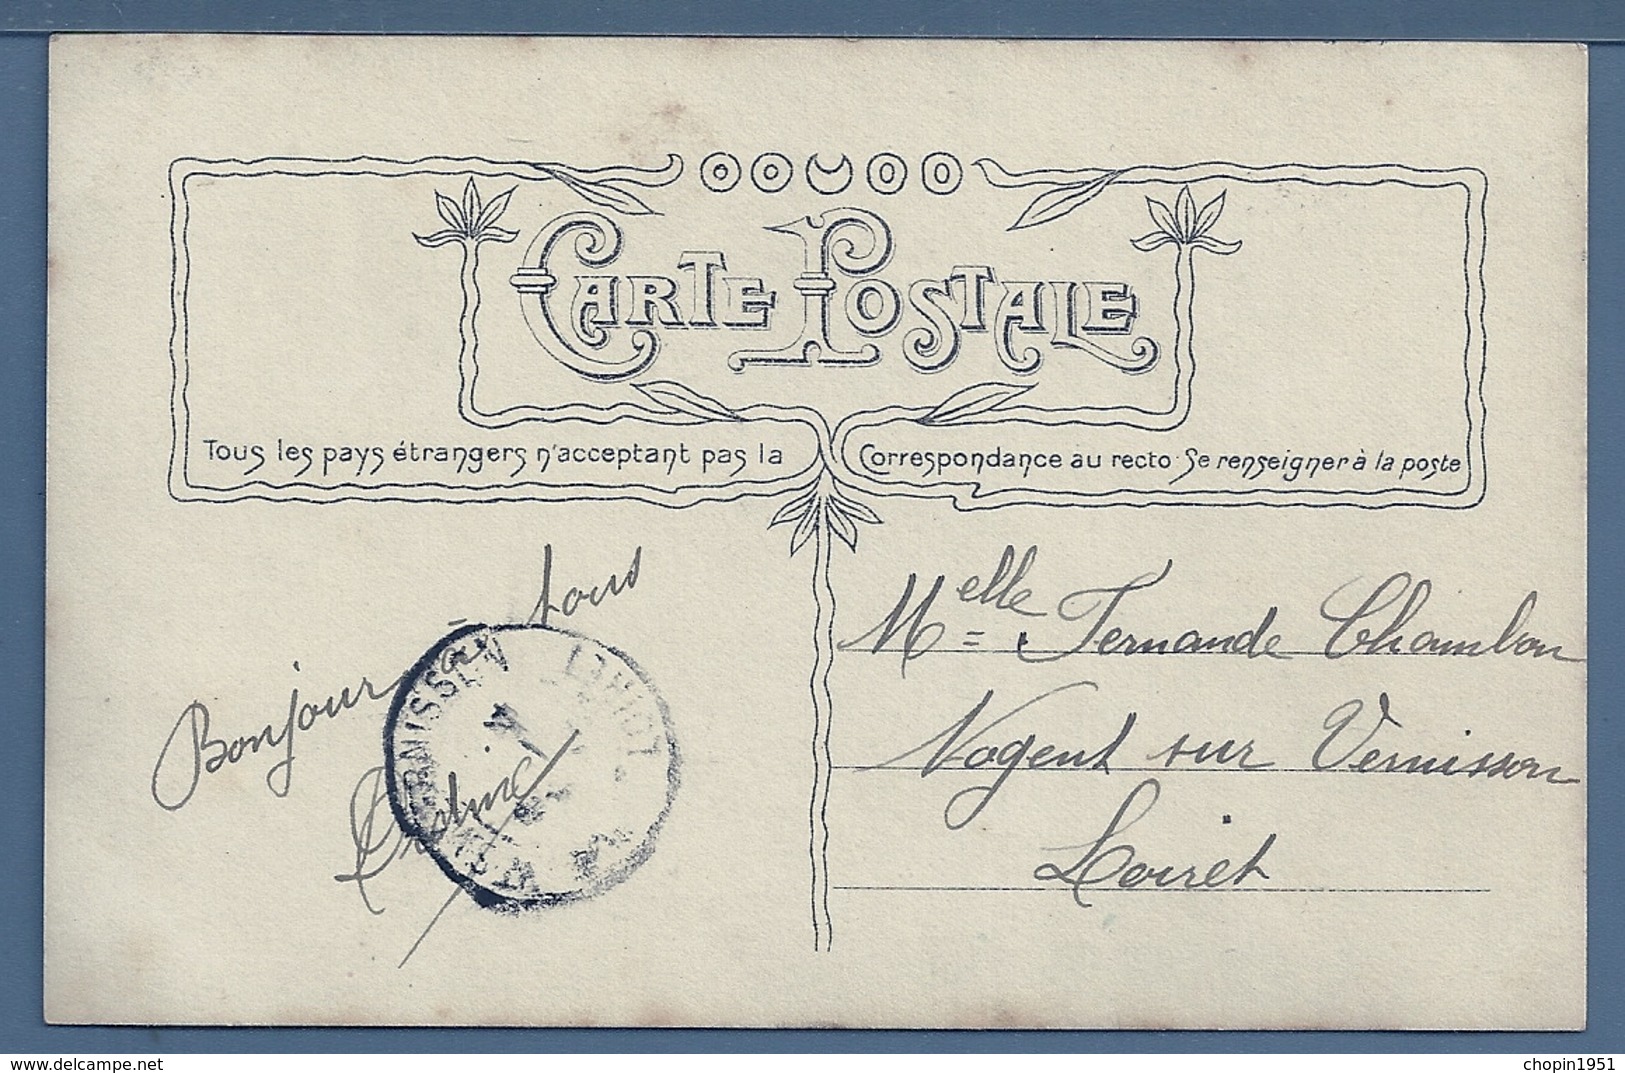 CARTE POSTALE
Tous les pays étrangers n'acceptant pas la Correspondance au recto. Se renseigner à la poste
Bonjour à tous
Melle Fernande Chambon
Nogent sur Vernisson
Loiret
LOIRET
chopin1951